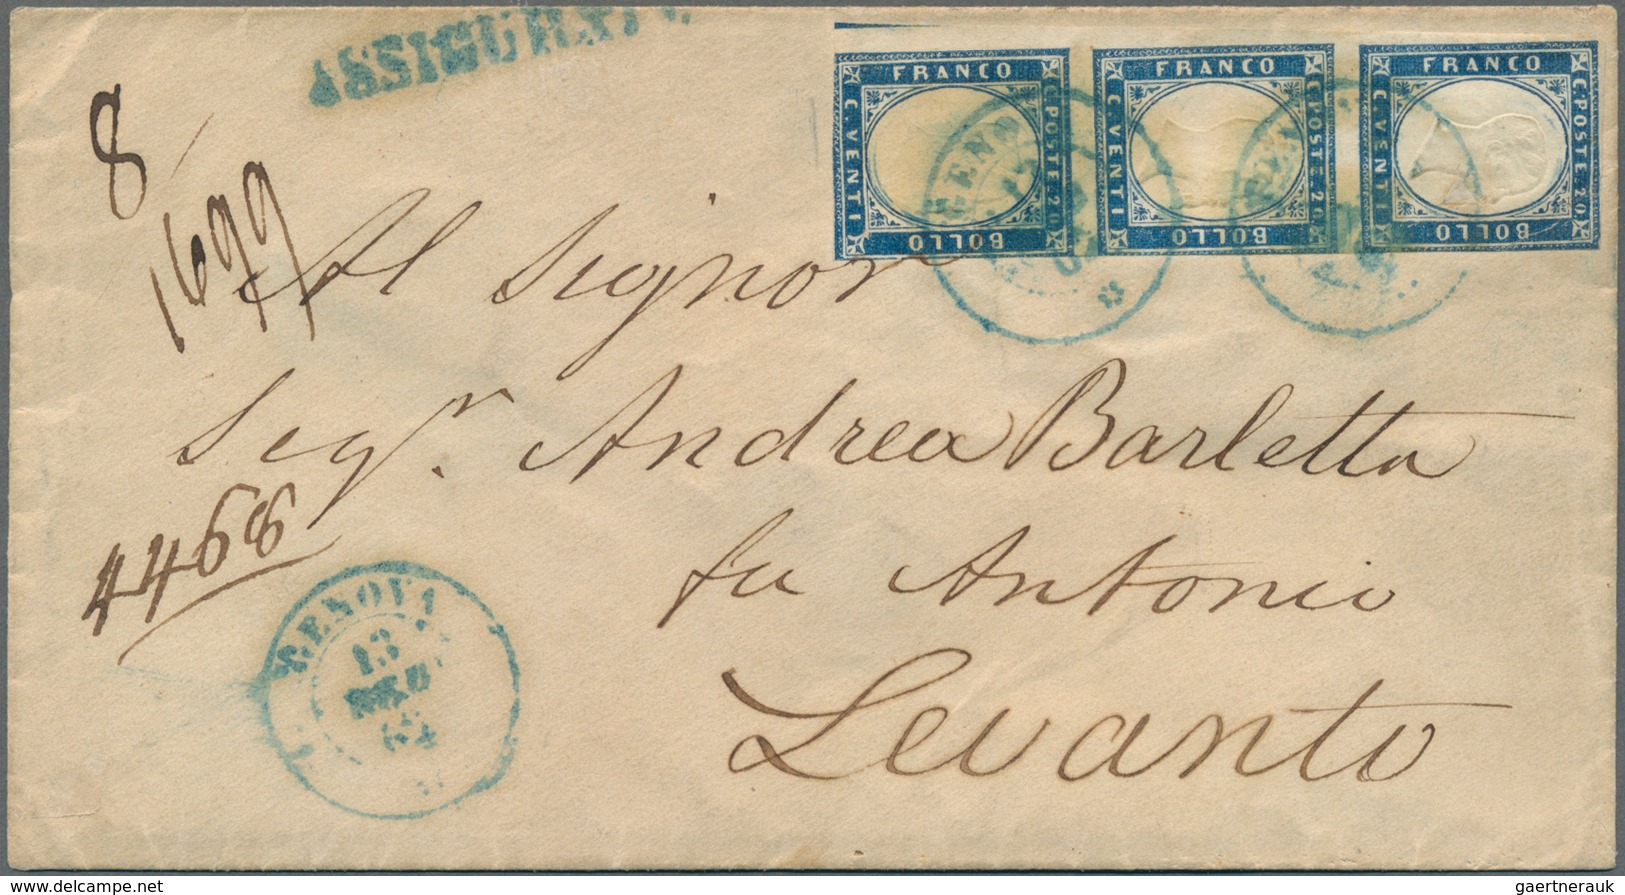 ASSICURATO
8
1699
FRANCO
C. POSTE 20
BOLLO
C. VENTI
FRANCO
C. POST. 20
BOLLO
C. VENTI
FRANCO
C. POSTE 20
BOLLO
C. VENTI
GENO
Al Signor
Segr. Andrea Barletta
fu Antonio
Levanto
4466
GENOVA
13
www.delcampe.net
gaertnerauk